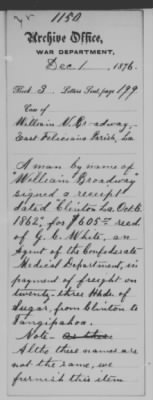 1150
Archive Office,
WAR DEPARTMENT,
Dec 1, 1876.
Book 3. Letters Sent, page 199
Case of
William N. Broadway,
East Feliciana Parish, La
A man by name of
"William Broadway"
signed a receipt
dated "Clinton La. Oct. 6
1862", for $605 00 recd.
of G. C. White, an
Agent of the Confederate
Medical Department, in
payment of freight on
twenty-three Hhds of
Sugar, from Clinton to
Tangipahoa.
Note —
Altho these names are
not the same, we
furnish this item